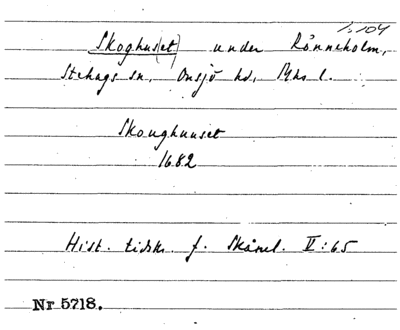 1:104
Skoghus(et) under Rönneholm,
Stehags sn, Onsjö hd, Mhs l.
Skoughuuset
1682
Hist. tidskr. f. Skånel. V:65
Nr 5718.